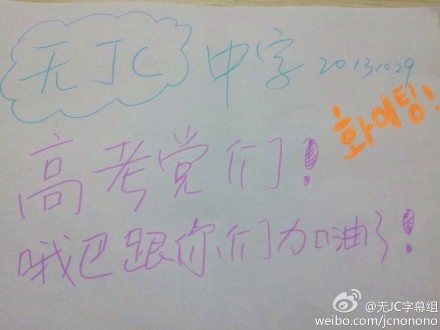 无JC 中字 20131029
화이팅!
高考党们!
哦巴跟你们加油了!
@无JC字幕组
weibo.com/jcnonono